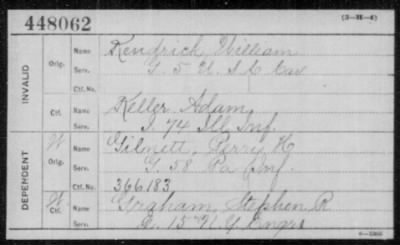 448062
(3-35-4)
INVALID
Orig.
Name Kendrick, William
Serv. G. 5 U. S. C. Cav
Ctf. No.
Ctf.
Name Keller, Adam
Serv. I. 74 Ill Inf.
DEPENDENT
W Orig.
Name Gilnett, Perry H
Serv. G. 58 Pa Inf.
Ctf. No. 366183
W Ctf.
Name Gorgham, Stephen R
Serv. 15 N.Y. Engrs